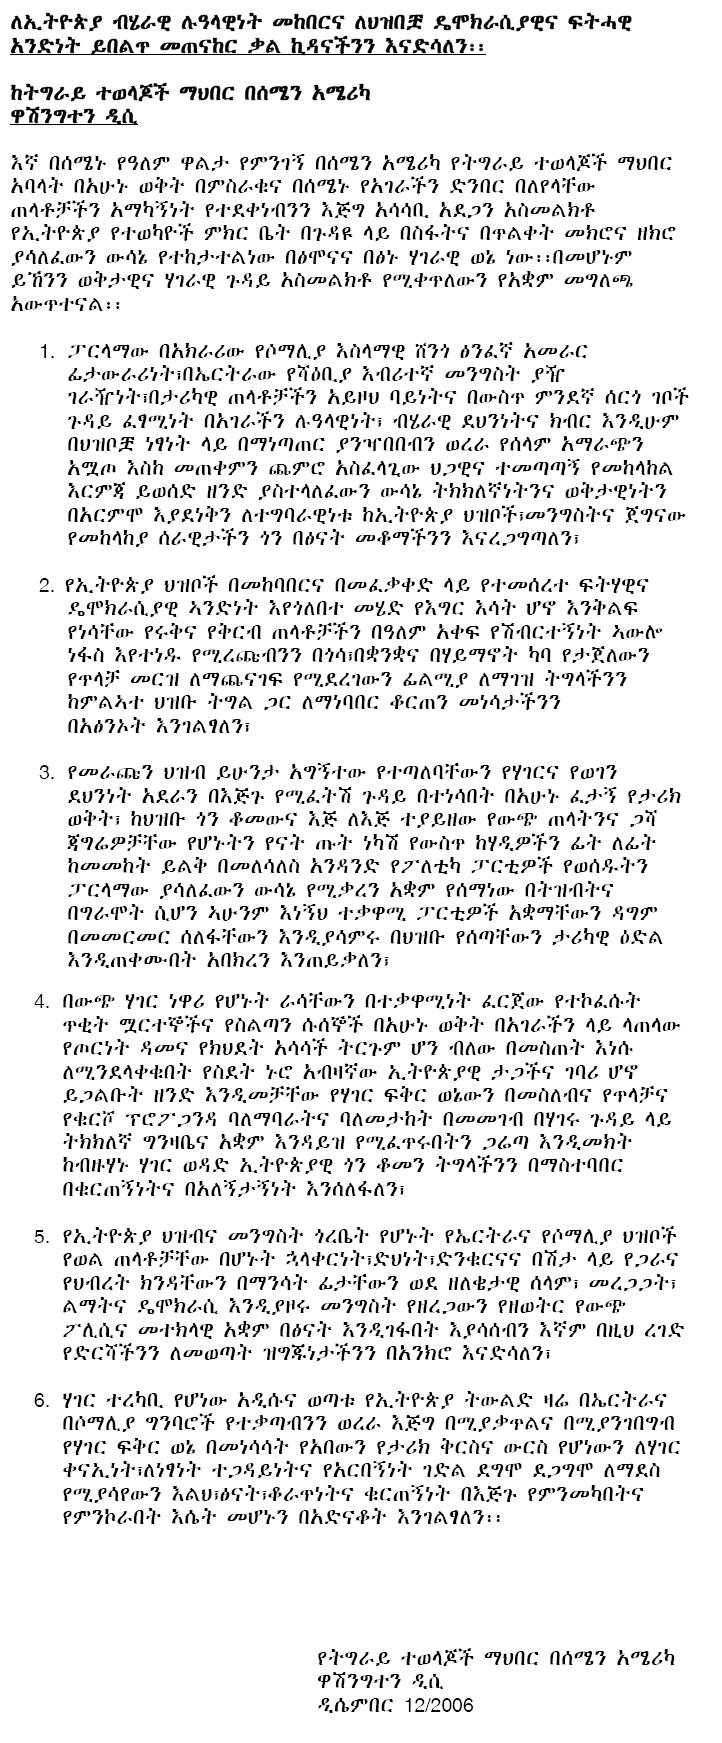 ለኢትዮጵያ ብሄራዊ ሉዓላዊነት መከበርና ለህዝበቿ ዴሞክራሲያዊና ፍትሓዊ
አንድነት ይበልጥ መጠናከር ቃል ኪዳናችንን እናድሳለን፡፡
ከትግራይ ተወላጆች ማህበር በሰሜን አሜሪካ
ዋሽንግተን ዲሲ
እኛ በሰሜኑ የዓለም ዋልታ የምንገኝ በሰሜን አሜሪካ የትግራይ ተወላጆች ማህበር
አባላት በአሁኑ ወቅት በምስራቁና በሰሜኑ የአገራችን ድንበር በለየላቸው
ጠላቶቻችን አማካኝነት የተደቀነብንን እጅግ አሳሳቢ አደጋን አስመልክቶ
የኢትዮጵያ የተወካዮች ምክር ቤት በጉዳዩ ላይ በስፋትና በጥልቀት መክሮና ዘክሮ
ያሳለፈውን ውሳኔ የተከታተልነው በፅሞናና በፅኑ ሃገራዊ ወኔ ነው፡፡በመሆኑም
ይኸንን ወቅታዊና ሃገራዊ ጉዳይ አስመልክቶ የሚቀጥለውን የአቋም መግለጫ
አውጥተናል፡፡
1. ፓርላማው በአክራሪው የሶማሊያ እስላማዊ ሸንጎ ፅንፈኛ አመራር
ፊታውራሪነት፣በኤርትራው የሻዕቢያ እብሪተኛ መንግስት ያዥ
ገራዥነት፣በታሪካዊ ጠላቶቻችን አይዞህ ባይነትና በውስጥ ምንደኛ ሰርጎ ገቦች
ጉዳይ ፈፃሚነት በአገራችን ሉዓላዊነት፣ ብሄራዊ ደህንነትና ክብር እንዲሁም
በህዝቦቿ ነፃነት ላይ በማነጣጠር ያንዣበበብን ወረራ የሰላም አማራጭን
አሟጦ እስከ መጠቀምን ጨምሮ አስፈላጊው ህጋዊና ተመጣጣኝ የመከላከል
እርምጃ ይወሰድ ዘንድ ያስተላለፈውን ውሳኔ ትክክለኛነትንና ወቅታዊነትን
በአርምሞ እያደነቅን ለተግባራዊነቱ ከኢትዮጵያ ህዝቦች፣መንግስትና ጀግናው
የመከላከያ ሰራዊታችን ጎን በፅናት መቆማችንን እናረጋግጣለን፣
2. የኢትዮጵያ ህዝቦች በመከባበርና በመፈቃቀድ ላይ የተመሰረተ ፍትሃዊና
ዴሞክራሲያዊ ኣንድነት እየጎለበተ መሄድ የእግር እሳት ሆኖ እንቅልፍ
የነሳቸው የሩቅና የቅርብ ጠላቶቻችን በዓለም አቀፍ የሽብርተኝነት ኣውሎ
ነፋስ እየተነዱ የሚረጩብንን በጎሳ፣በቋንቋና በሃይማኖት ካባ የታጀለውን
የጥላቻ መርዝ ለማጨናገፍ የሚደረገውን ፊልሚያ ለማገዝ ትግላችንን
ከምልኣተ ህዝቡ ትግል ጋር ለማነባበር ቆርጠን መነሳታችንን
በአፅንኦት እንገልፃለን፣
3. የመራጩን ህዝብ ይሁንታ አግኝተው የተጣለባቸውን የሃገርና የወገን
ደህንነት አደራን በእጅጉ የሚፈትሽ ጉዳይ በተነሳበት በአሁኑ ፈታኝ የታሪክ
ወቅት፣ ከህዝቡ ጎን ቆመውና እጅ ለእጅ ተያይዘው የውጭ ጠላትንና ጋሻ
ጃግሬዎቻቸው የሆኑትን የናት ጡት ነካሽ የውስጥ ከሃዲዎችን ፊት ለፊት
ከመመከት ይልቅ በመለሳለስ አንዳንድ የፖለቲካ ፓርቲዎች የወሰዱትን
ፓርላማው ያሳለፈውን ውሳኔ የሚቃረን አቋም የሰማነው በትዝብትና
በግራሞት ሲሆን ኣሁንም እነኝህ ተቃዋሚ ፓርቲዎች አቋማቸውን ዳግም
በመመርመር ሰለፋቸውን እንዲያሳምሩ በህዝቡ የሰጣቸውን ታሪካዊ ዕድል
እንዲጠቀሙበት አበክረን እንጠይቃለን፣
4. በውጭ ሃገር ነዋሪ የሆኑት ራሳቸውን በተቃዋሚነት ፈርጀው የተኮፈሱት
ጥቂት ሟርተኞችና የስልጣን ሱሰኞች በአሁኑ ወቅት በአገራችን ላይ ላጠላው
የጦርነት ዳመና የክህደት አሳሳች ትርጉም ሆን ብለው በመስጠት እነሱ
ለሚንደላቀቁበት የስደት ኑሮ አብዛኛው ኢትዮጵያዊ ታጋችና ገባሪ ሆኖ
ይጋልቡት ዘንድ እንዲመቻቸው የሃገር ፍቅር ወኔውን በመስለብና የጥላቻና
የቁርሾ ፕሮፖጋንዳ ባለማባራትና ባለመታከት በመመገብ በሃገሩ ጉዳይ ላይ
ትክክለኛ ግንዛቤና አቋም እንዳይዝ የሚፈጥሩበትን ጋሬጣ እንዲመክት
ከብዙሃኑ ሃገር ወዳድ ኢትዮጵያዊ ጎን ቆመን ትግላችንን በማስተባበር
በቁርጠኝነትና በአለኝታኝነት እንሰለፋለን፣
5. የኢትዮጵያ ህዝብና መንግስት ጎረቤት የሆኑት የኤርትራና የሶማሊያ ህዝቦች
የወል ጠላቶቻቸው በሆኑት ኋላቀርነት፣ድህነት፣ድንቁርናና በሽታ ላይ የጋራና
የህብረት ክንዳቸውን በማንሳት ፊታቸውን ወደ ዘለቄታዊ ሰላም፣ መረጋጋት፣
ልማትና ዴሞክራሲ እንዲያዞሩ መንግስት የዘረጋውን የዘወትር የውጭ
ፖሊሲና መተክላዊ አቋም በፅናት እንዲገፋበት እያሳሰብን እኛም በዚህ ረገድ
የድርሻችንን ለመወጣት ዝግጁነታችንን በአንክሮ እናድሳለን፣
6. ሃገር ተረካቢ የሆነው አዲሱና ወጣቱ የኢትዮጵያ ትውልድ ዛሬ በኤርትራና
በሶማሊያ ግንባሮች የተቃጣብንን ወረራ እጅግ በሚያቃጥልና በሚያንገበግብ
የሃገር ፍቅር ወኔ በመነሳሳት የአበውን የታሪክ ቅርስና ውርስ የሆነውን ለሃገር
ቀናኢነት፣ለነፃነት ተጋዳይነትና የአርበኝነት ገድል ደግሞ ደጋግሞ ለማደስ
የሚያሳየውን እልህ፣ፅናት፣ቆራጥነትና ቁርጠኝነት በእጅጉ የምንመካበትና
የምንኮራበት እሴት መሆኑን በአድናቆት እንገልፃለን፡፡
የትግራይ ተወላጆች ማህበር በሰሜን አሜሪካ
ዋሽንግተን ዲሲ
ዲሴምበር 12/2006